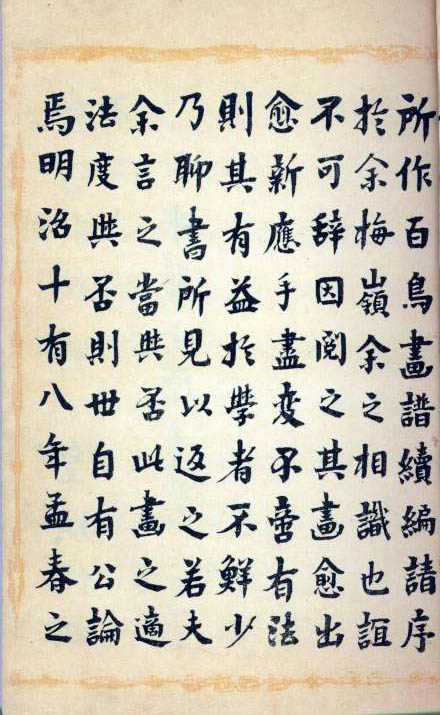 所作百鳥畫譜續編請序
於余梅嶺余之相識也誼
不可辞因閲之其畫愈出
愈新應手盡変不啻有法
則其有益於學者不鮮少
乃聊書所見以返之若夫
余言之當與否此畫之適
法度與否則世自有公論
焉明治十有八年孟春之